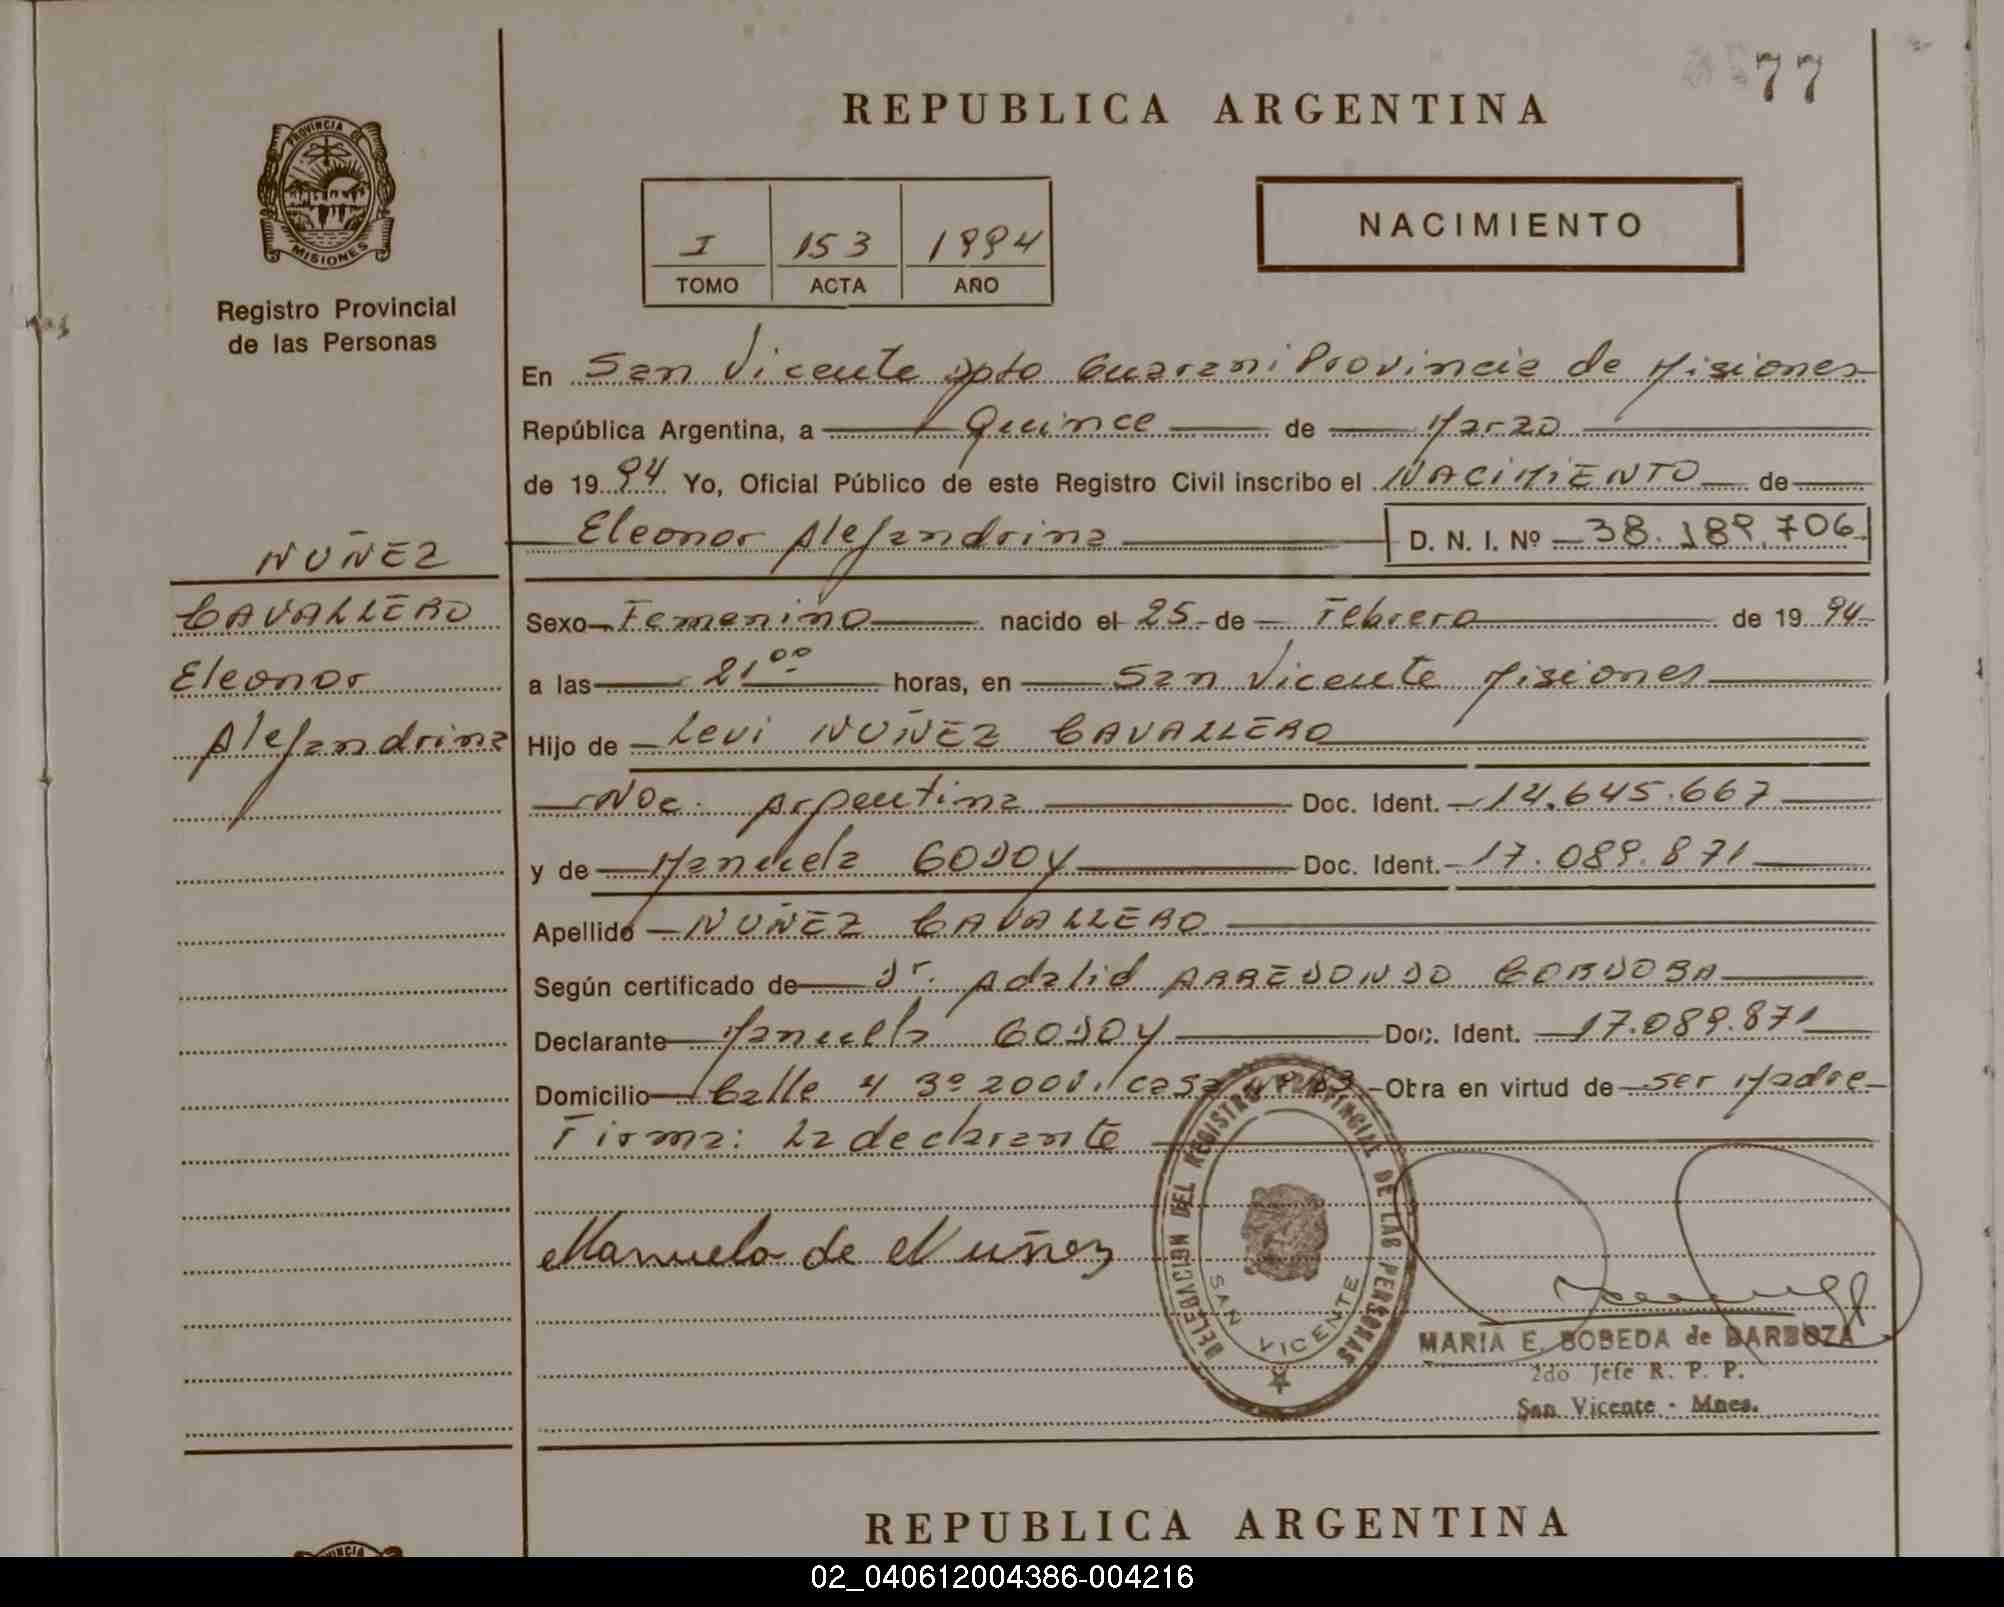 77
REPUBLICA ARGENTINA
PROVINCIA DE
MISIONES
Registro Provincial
de las Personas
I 153 1994
TOMO ACTA AÑO
NACIMIENTO
En San Vicente Dpto Guarani Provincia de Misiones
República Argentina, a Quince de Marzo
de 1994 Yo, Oficial Público de este Registro Civil inscribo el NACIMIENTO de
Eleonor Alejandrina D. N. I. Nº 38.189.706
NUÑEZ
CAVALLERO
Eleonor
Alejandrina
Sexo Femenino nacido el 25 de Febrero de 1994
a las 21 00 horas, en San Vicente Misiones
Hijo de Levi NUÑEZ CAVALLERO
Nac. Argentina Doc. Ident. 14.645.667
y de Manuela GODOY Doc. Ident. 17.089.871
Apellido NUÑEZ CAVALLERO
Según certificado de Dr. Adalid ARREDONDO CORDOBA
Declarante Manuela GODOY Doc. Ident. 17.089.871
Domicilio Calle 4 3º 200 casa Obra en virtud de ser Madre
Firma: La declarante
Manuela de Nuñez
DELEGACION DEL REGISTRO PROVINCIAL DE LAS PERSONAS
SAN VICENTE
MARIA E. BOBEDA de BARBOZA
2do Jefe R. P. P.
San Vicente - Mnes.
REPUBLICA ARGENTINA
02_040612004386-004216